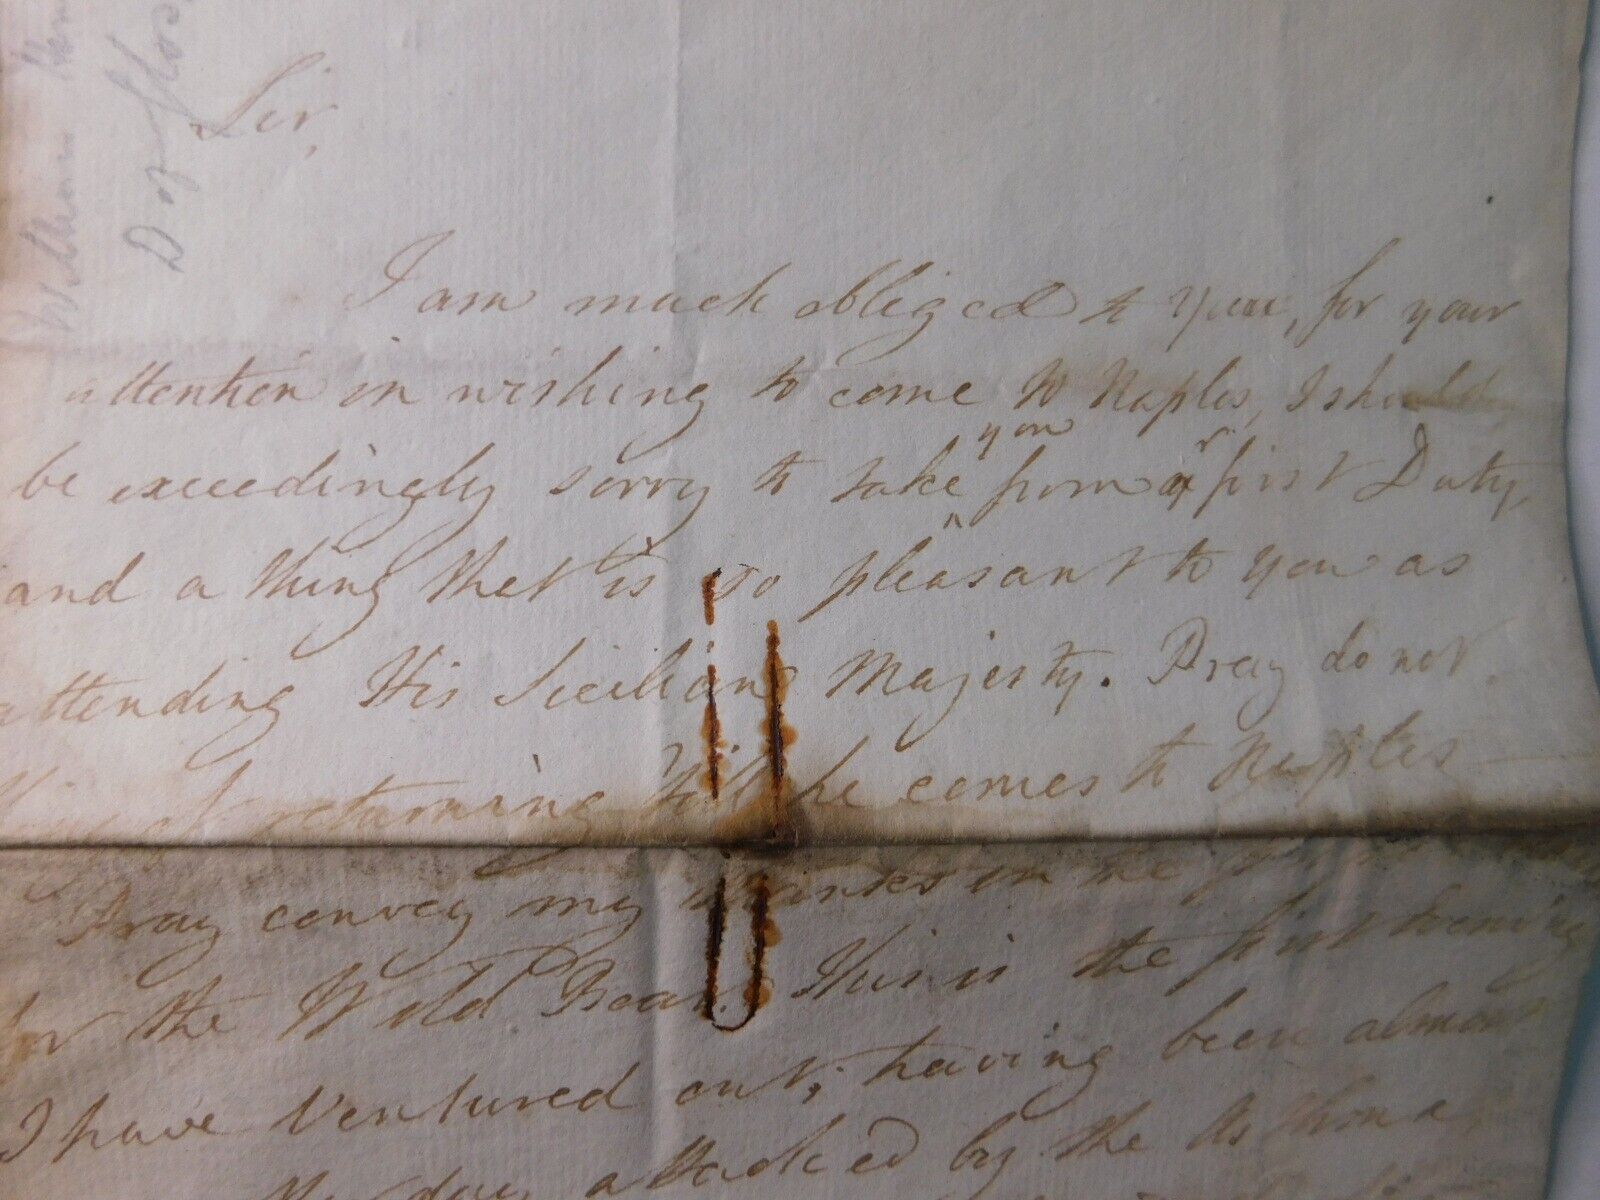 William Hen
D of Glos
Sir,
I am much obliged to you, for your
attention in wishing to come to Naples, I should
be exceedingly sorry to take you from yr first Duty,
and a thing that is so pleasant to you as
attending His Sicilian Majesty. Pray do not
think of returning till he comes to Naples
Pray convey my thanks in the
for the Wild Boar. This is the first Evening
I have Ventured out, having been almost
day attacked by the Asthma,